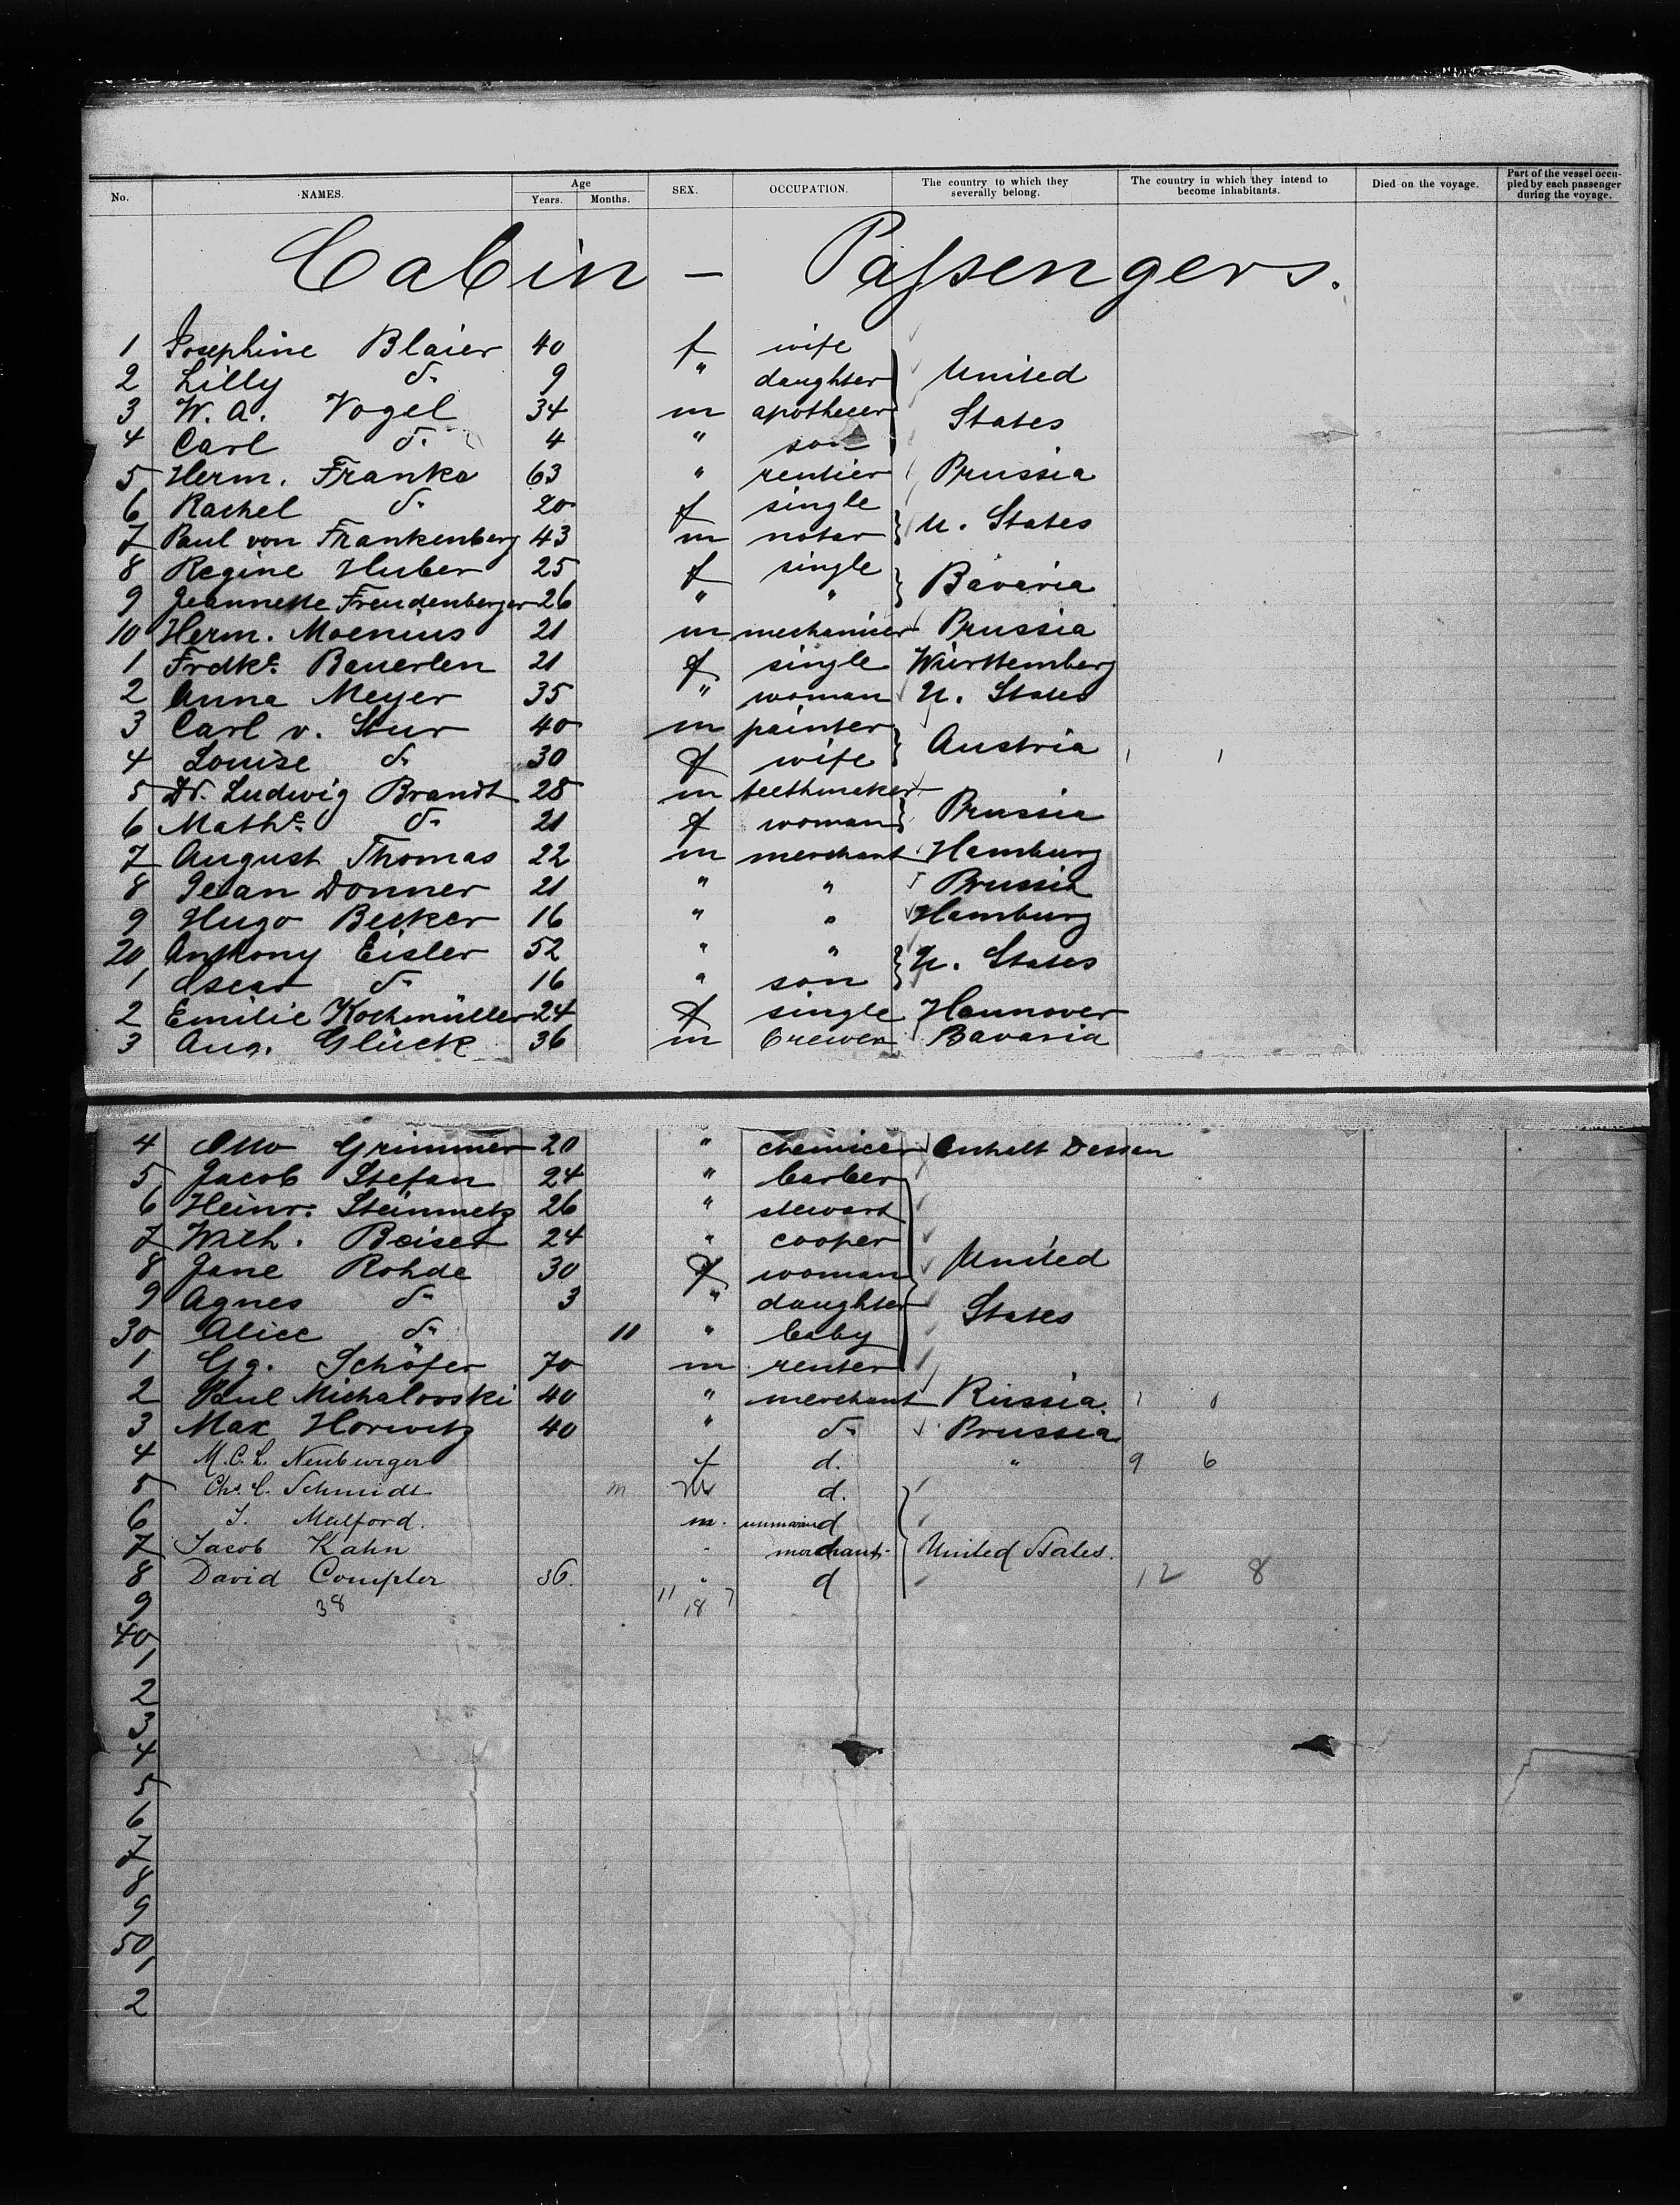 No. NAMES. Age Years. Months. SEX. OCCUPATION. The country to which they severally belong. The country in which they intend to become inhabitants. Died on the voyage. Part of the vessel occupied by each passenger during the voyage.
Cabin - Passengers.
1 Josephine Blaier 40 f wife
2 Lilly do 9 " daughter United
3 W. A. Vogel 34 m apothecer States
4 Carl do 4 " son
5 Herm. Franke 63 " rentier Prussia
6 Rachel do 20 f single
7 Paul von Frankenberg 43 m notar U. States
8 Regine Huber 25 f single
9 Jeannette Freudenberger 26 " " Bavaria
10 Herm. Moenius 21 m mechanicer Prussia
1 Frdke. Bauerlen 21 f single Württemberg
2 Anna Meyer 35 " woman U. States
3 Carl v. Stur 40 m painter
4 Louise do 30 f wife Austria 1 1
5 Dr. Ludwig Brandt 28 m teethmaker
6 Mathe. do 21 f woman Prussia
7 August Thomas 22 m merchant Hamburg
8 Jean Donner 21 " " Prussia
9 Hugo Becker 16 " " Hamburg
20 Anthony Eisler 52 " "
1 Oscar do 16 " son U. States
2 Emilie Kochmüller 24 f single Hannover
3 Aug. Glück 36 m brewer Bavaria
4 Otto Grimmer 20 " chemicer Anhalt Dessau
5 Jacob Stefan 24 " barber
6 Heinr. Steinmetz 26 " stewart
7 Wilh. Boiset 24 " cooper
8 Jane Rohde 30 f woman United
9 Agnes do 3 " daughter States
30 Alice do 11 " baby
1 Gg. Schöfer 70 m renter
2 Paul Michalovski 40 " merchant Russia. 1
3 Max Horwitz 40 " do Prussia
4 M. C. L. Neuburger f d. " 9 6
5 Chs. C. Schmidt m M d.
6 Mulford. m.
7 Jacob Kahn merchant United States.
8 David Compter 36. " d 12 8
9 38 11 18 7
40
1
2
3
4
5
6
7
8
9
50
1
2